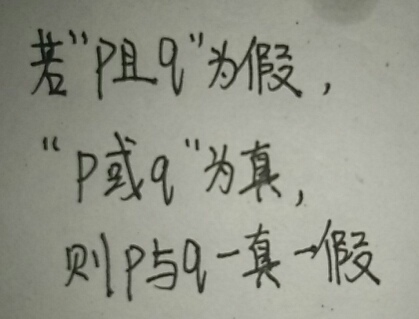 若“P且q”为假，
“P或q”为真，
则P与q一真一假